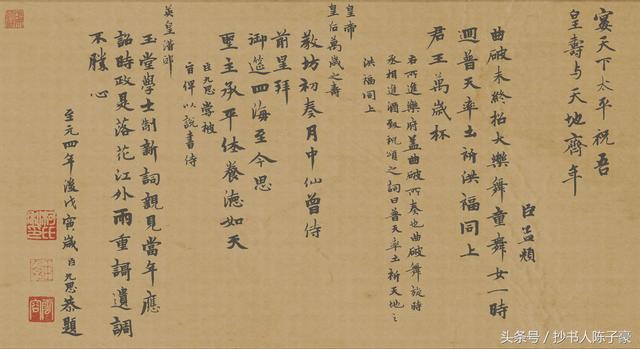 宴天下太平祝吾
皇壽与天地齊年
臣孟頫
曲破未終招大樂舞童舞女一時
迴普天率土祈洪福同上
君王萬歲杯
右所進樂府盖曲破所奏也曲破舞旋時
丞相進酒致祝頌之詞曰普天率土祈天地之
洪福同上
皇帝
皇后萬歲之壽
教坊初奏月中仙曾侍
前星拜
御筵四海至今思
聖主承平休養德如天
臣九思嘗被
旨俾以說書侍
英皇潛邸
玉堂學士制新詞親見當年應
詔時政是落花江外雨重調遺調
不勝心
至元四年後戊寅歲臣九思恭題
头条号 / 抄书人陈子豪